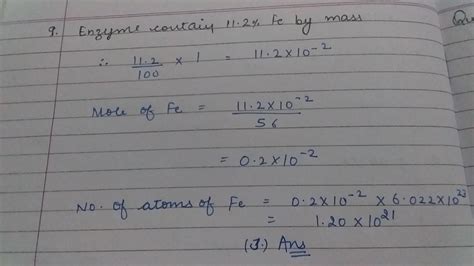 9. Enzyme contain 11.2% Fe by mass
∴ 11.2/100 × 1 = 11.2 × 10⁻²
Mole of Fe = 11.2 × 10⁻²/56
= 0.2 × 10⁻²
No. of atoms of Fe = 0.2 × 10⁻² × 6.022 × 10²³
= 1.20 × 10²¹
(3.) Ans